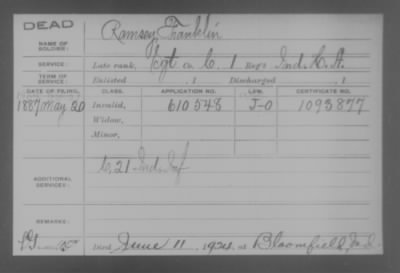 DEAD
NAME OF SOLDIER: Ramsey, Franklin
SERVICE: Late rank, Sgt Co. C, 1 Reg't Ind. H. A.
TERM OF SERVICE: Enlisted , 1 Discharged , 1
DATE OF FILING. CLASS. APPLICATION NO. LAW. CERTIFICATE NO.
1887 May 20 Invalid, 610548 J-O 1093877
Widow,
Minor,
ADDITIONAL SERVICES: C. 21 Ind. Inf
REMARKS:
Died June 11, 1924, at Bloomfield, Ind.